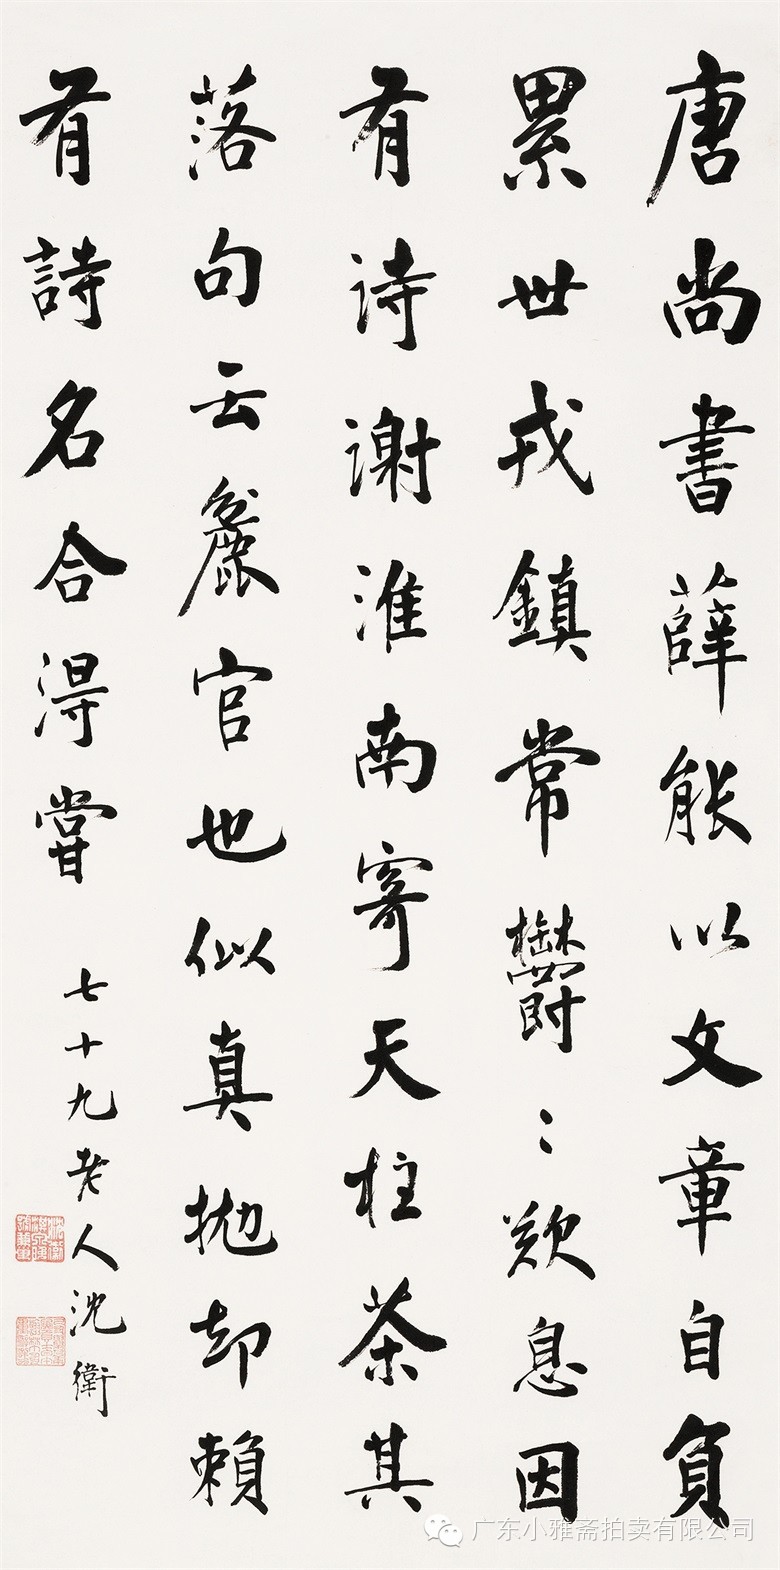 唐尚書薛能以文章自負
累世戎鎮常鬱〻歎息因
有诗谢淮南寄天柱茶其
落句云麤官也似真抛却賴
有詩名合得嘗
七十九老人沈衛
广东小雅斋拍卖有限公司